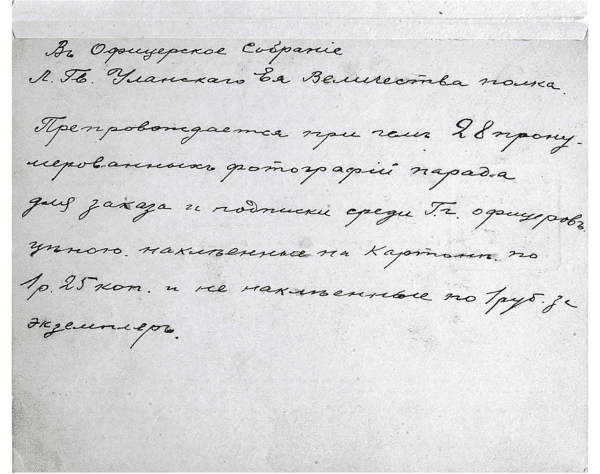 Въ Офицерское Собраніе
Л. Гв. Уланскаго Ея Величества полка.
Препровождается при чемъ 28 прону-
мерованныхъ фотографій парада
для заказа и подписки среди Г.г. офицеровъ
цѣною. наклѣенные на Картонъ. по
1 р. 25 коп. и не наклѣенные по 1 руб. за
экземпляръ.